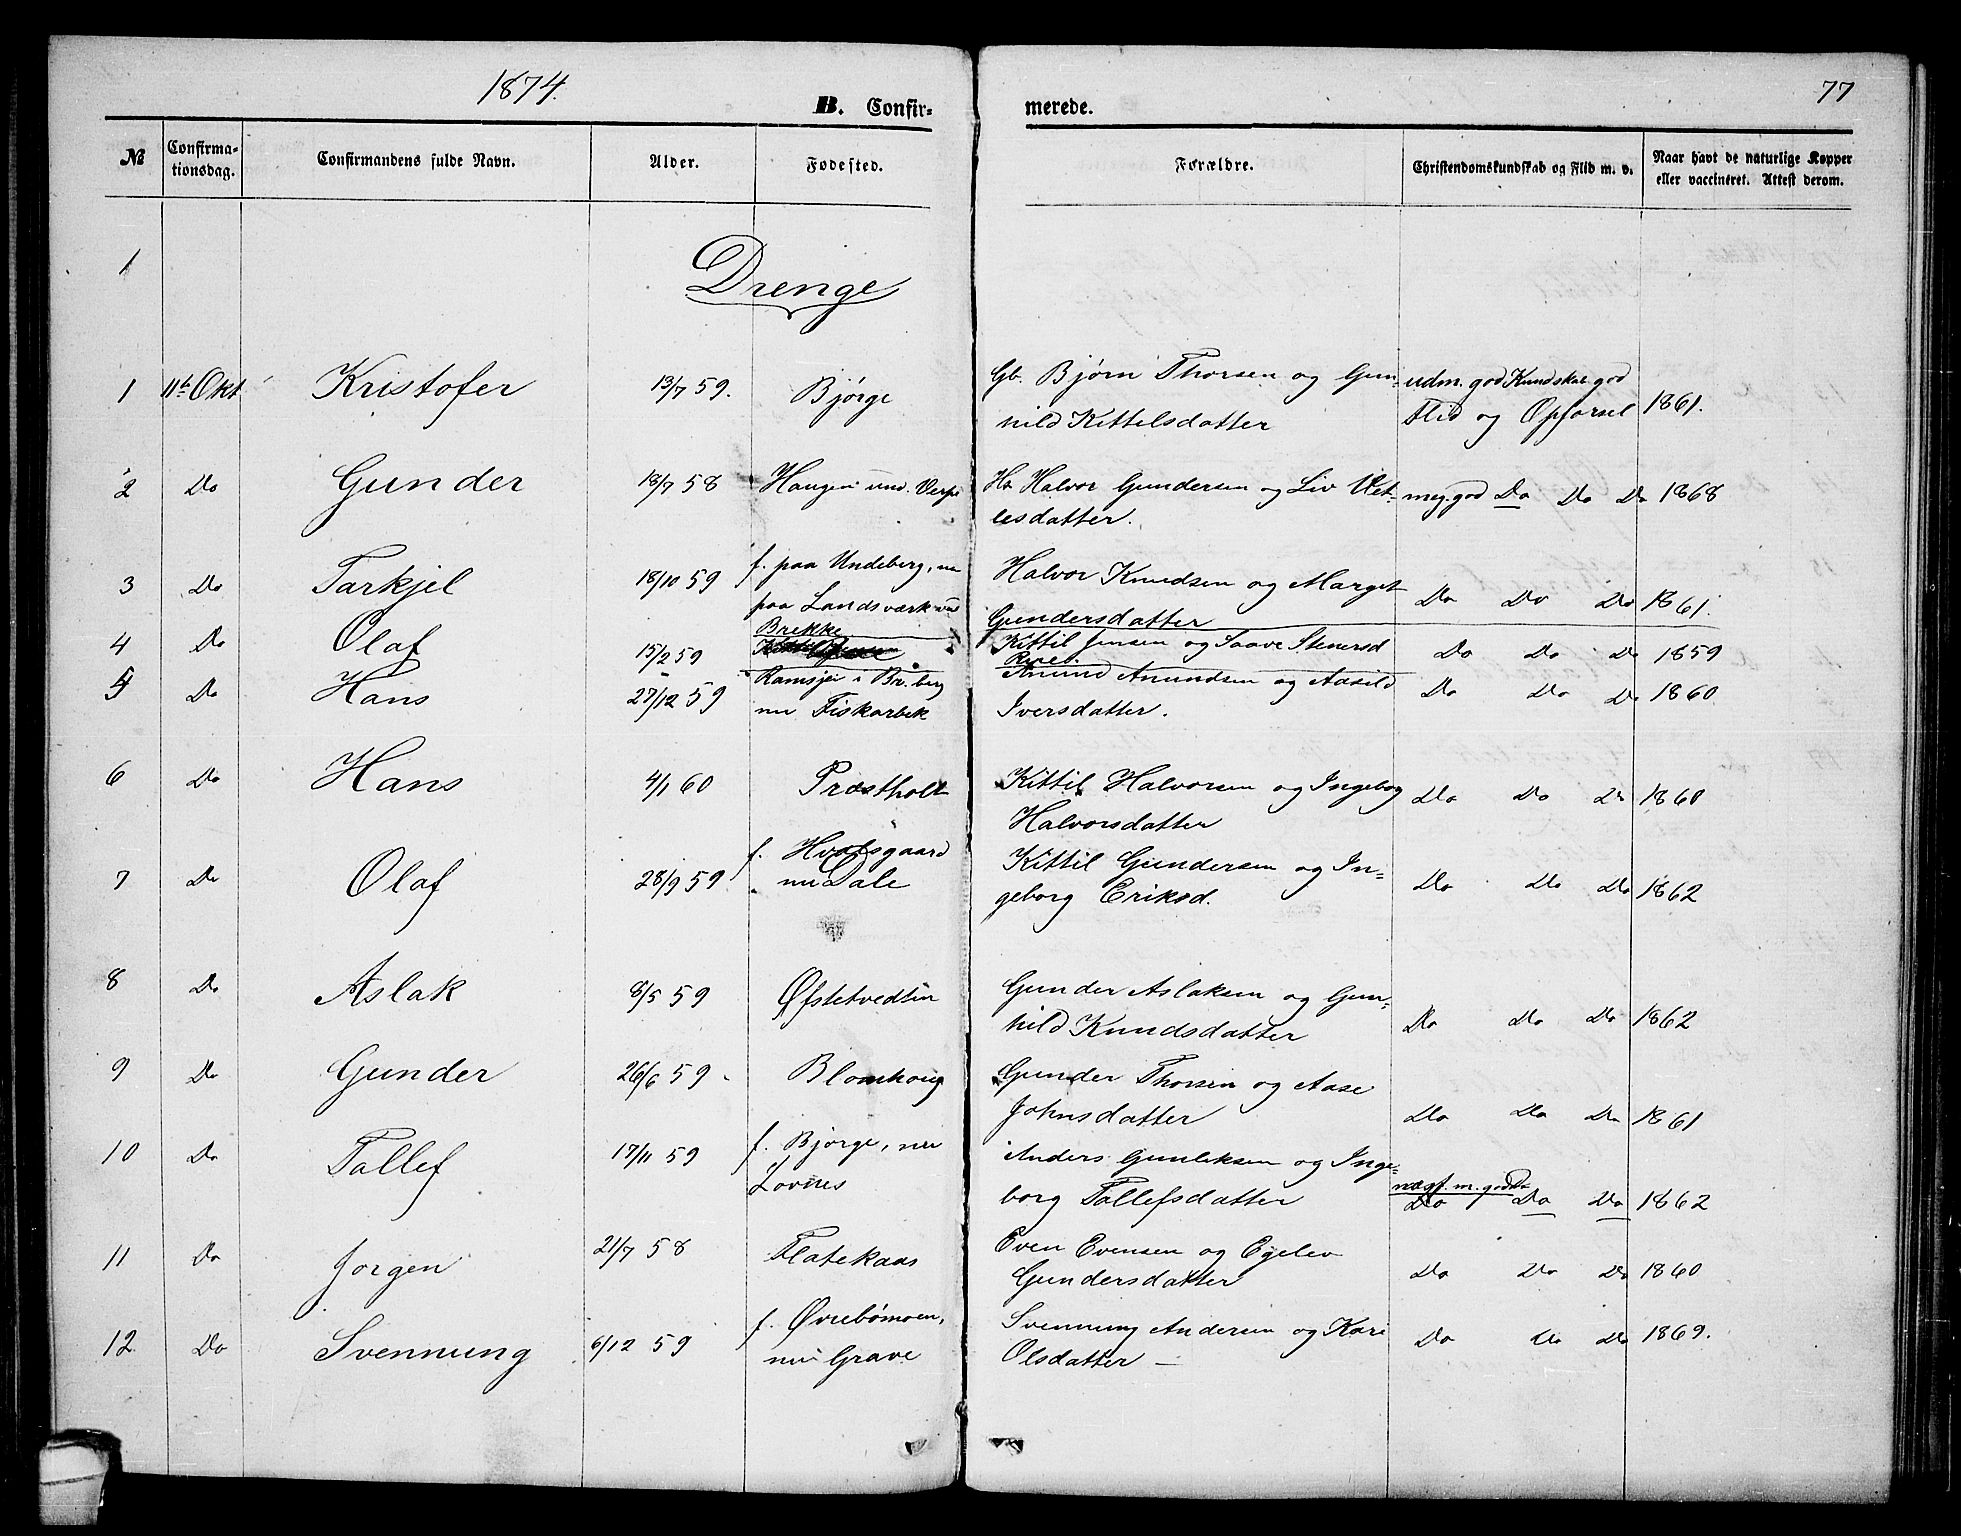 1874.
77
B. Confirmerede.
№ Confirmationsdag. Confirmandens fulde Navn. Alder. Fødested. Forældre. Christendomskundskab og Flid m. v. Naar havt de naturlige Kopper eller vaccineret. Attest derom.
1
Drenge
1 11te Okt Kristofer 13/7 59. Bjørge Gb. Bjørn Thorsen og Gun- udm. god Kundskab god 1861.
nild Kittelsdatter Flid og Opførsel
2 Do Gunder 18/7 58 Haugen und. Verpe Halvor Gundersen og Liv Vet- meg. god Do Do Do 1868
lesdatter.
3 Do Tarkjel 18/10 59 f. paa Undeberg, nu Halvor Knudsen og Marget Do Do Do 1861.
paa Landsværk Gundersdatter
4 Do Olaf 15/2 59 Brekke Kittil Jensen og Saave Stenersd Do Do Do 1859
5 Do Hans 27/12 59 Ramsjei i Br. berg Anund Anundsen og Aasild Do Do Do 1860
nu Fiskarbek Iversdatter.
6 Do Hans 4/1 60 Præstholt Kittil Halvorsen og Ingeborg Do Do Do 1860
Halvorsdatter
7 Do Olaf 28/9 59 f. Hvalsgaard Kittil Gundersen og In- Do Do Do 1862
nu Dale geborg Eriksd.
8 Do Aslak 8/5 59 Øfstetvedtin Gunder Aslaksen og Gun- Do Do Do 1862
hild Knudsdatter
9 Do Gunder 26/6 59 Blomhoug Gunder Thorsen og Aase Do Do Do 1861
Johnsdatter
10 Do Tallef 17/11 59 f. Bjørge, nu Anders Gunleksen og Inge- næst. m. god Do
Lovnes borg Tallefsdatter Do Do Do 1862
11 Do Jørgen 21/7 58 Flatekaas Even Evensen og Egelev Do Do Do 1860
Gundersdatter
12 Do Svennung 6/12 59 f. Øvrebømoen, Svennung Andersen og Kari Do Do Do 1869.
nu Grave Olsdatter —